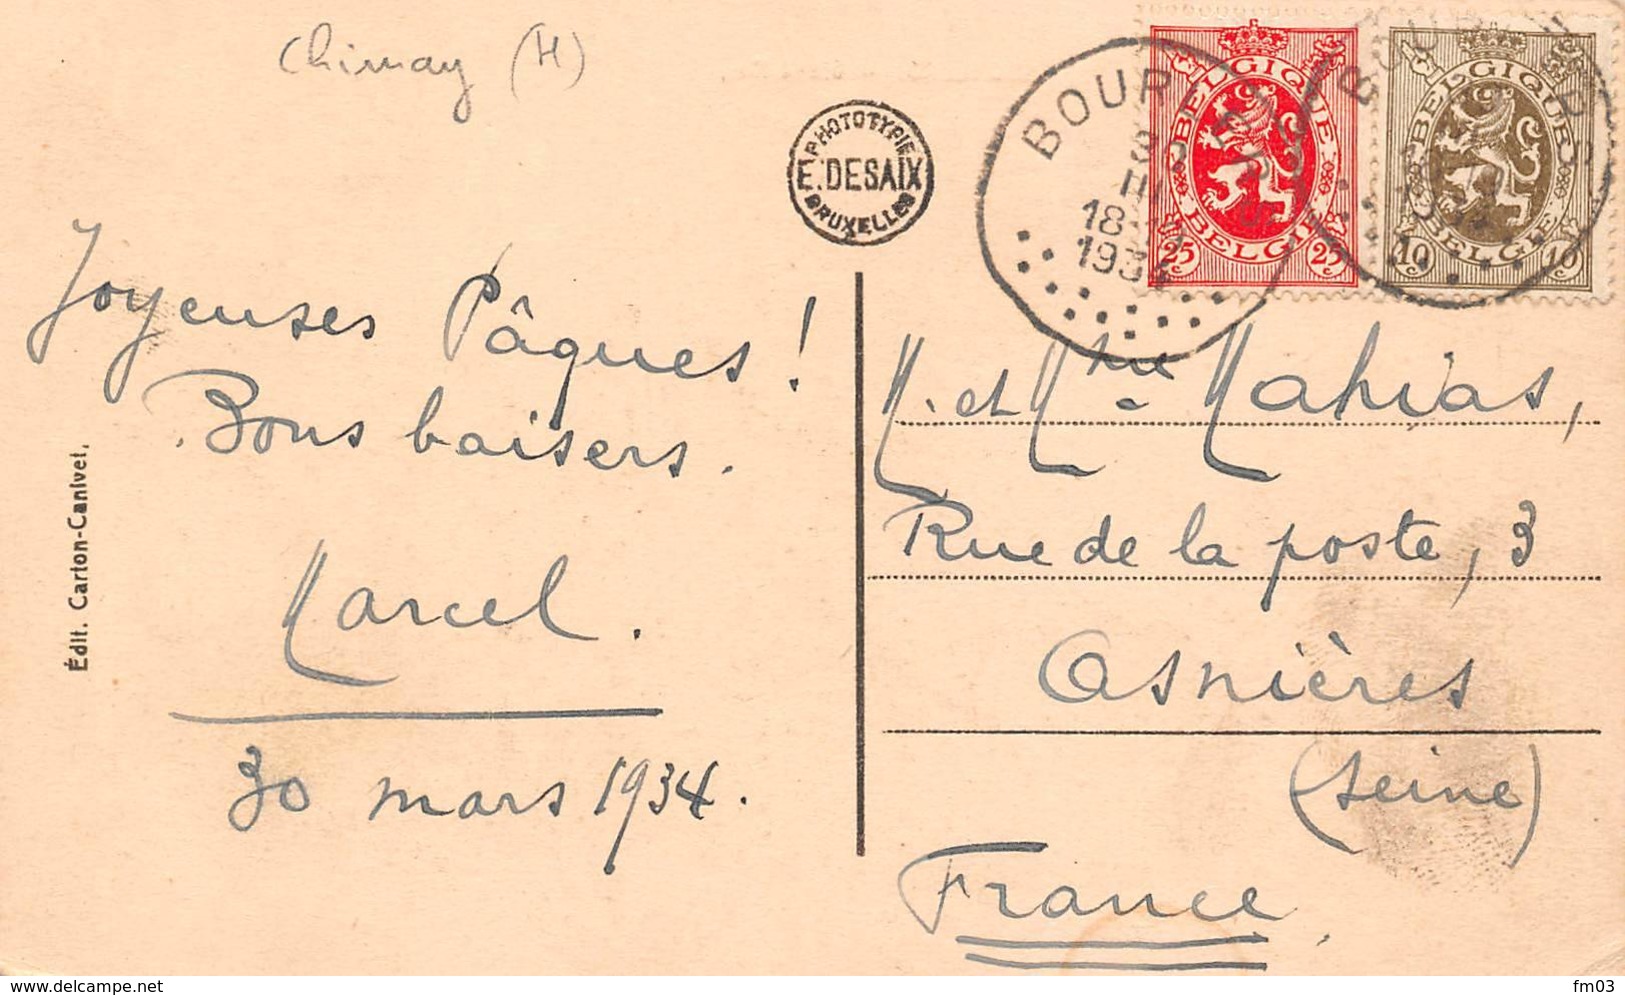 Chimay (H)
PHOTOTYPIE
E. DESAIX
BRUXELLES
BELGIQUE
BELGIE
25 c 25 c
BELGIQUE
BELGIE
10 c 10 c
BOUR
III
18
1934
Joyeuses Pâques !
Bons baisers.
Marcel.
30 mars 1934.
Édit. Carton-Canivet.
M. et Mme Mahias,
Rue de la poste, 3
Asnières
(Seine)
France.
www.delcampe.net
fm03